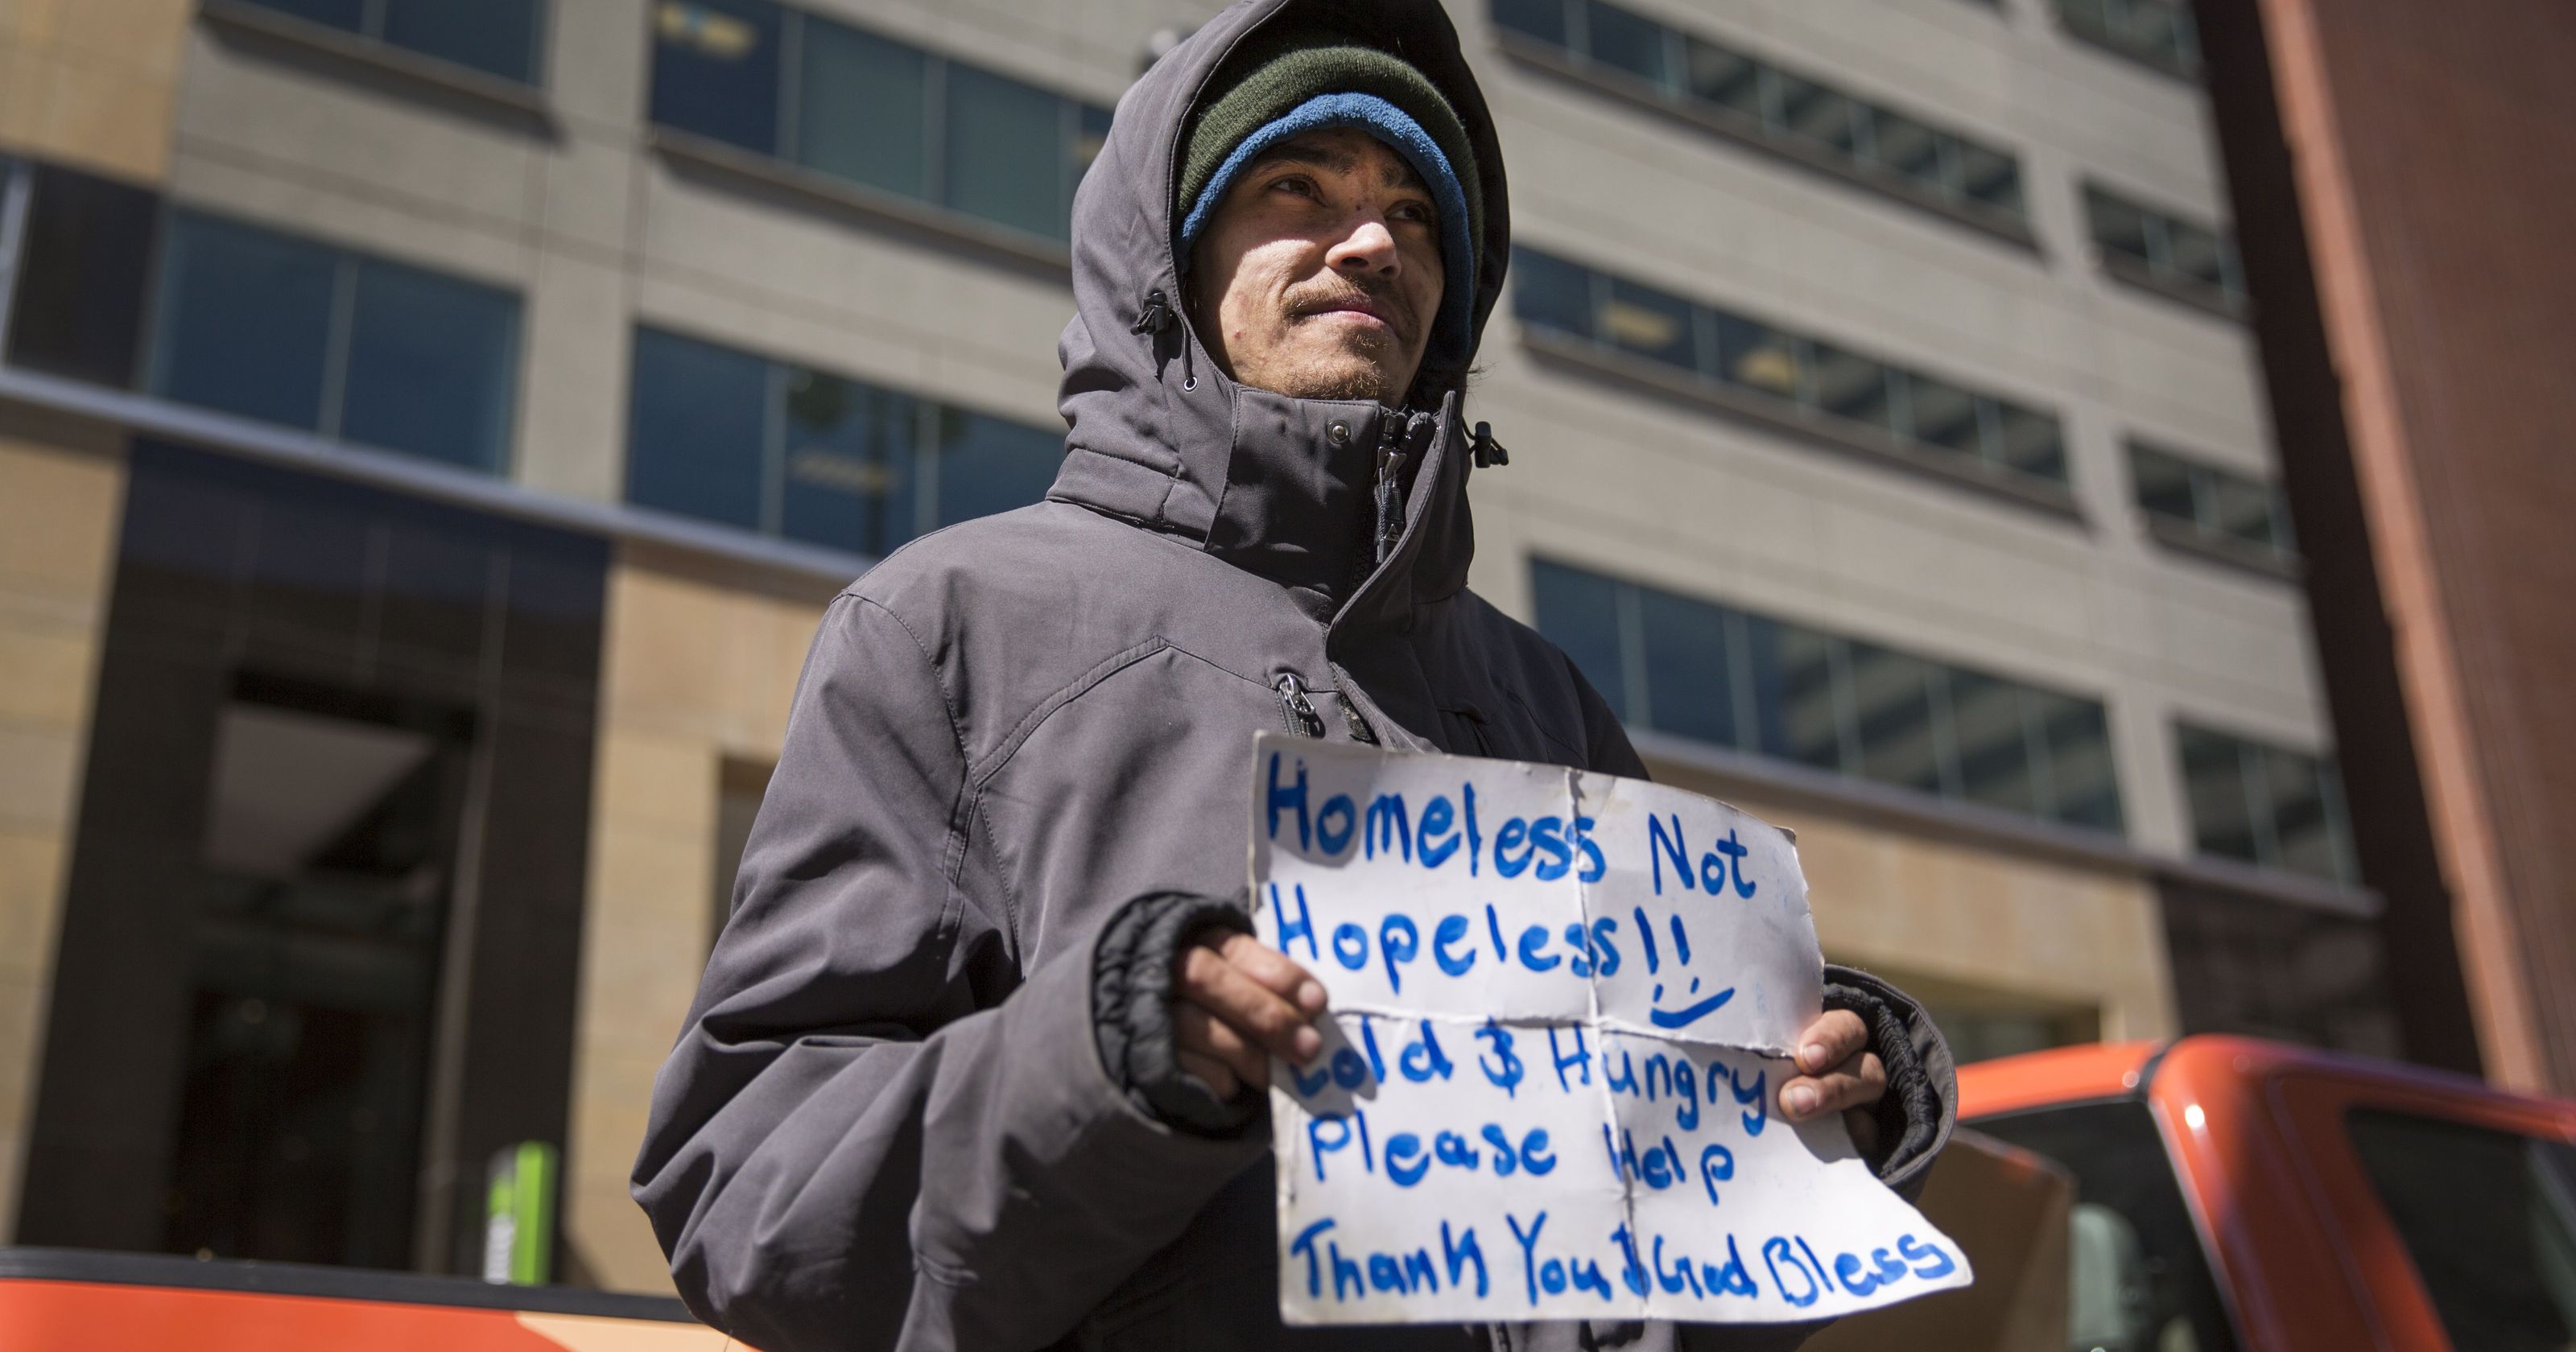 Homeless Not
Hopeless!!
Cold & Hungry
Please Help
Thank You & God Bless